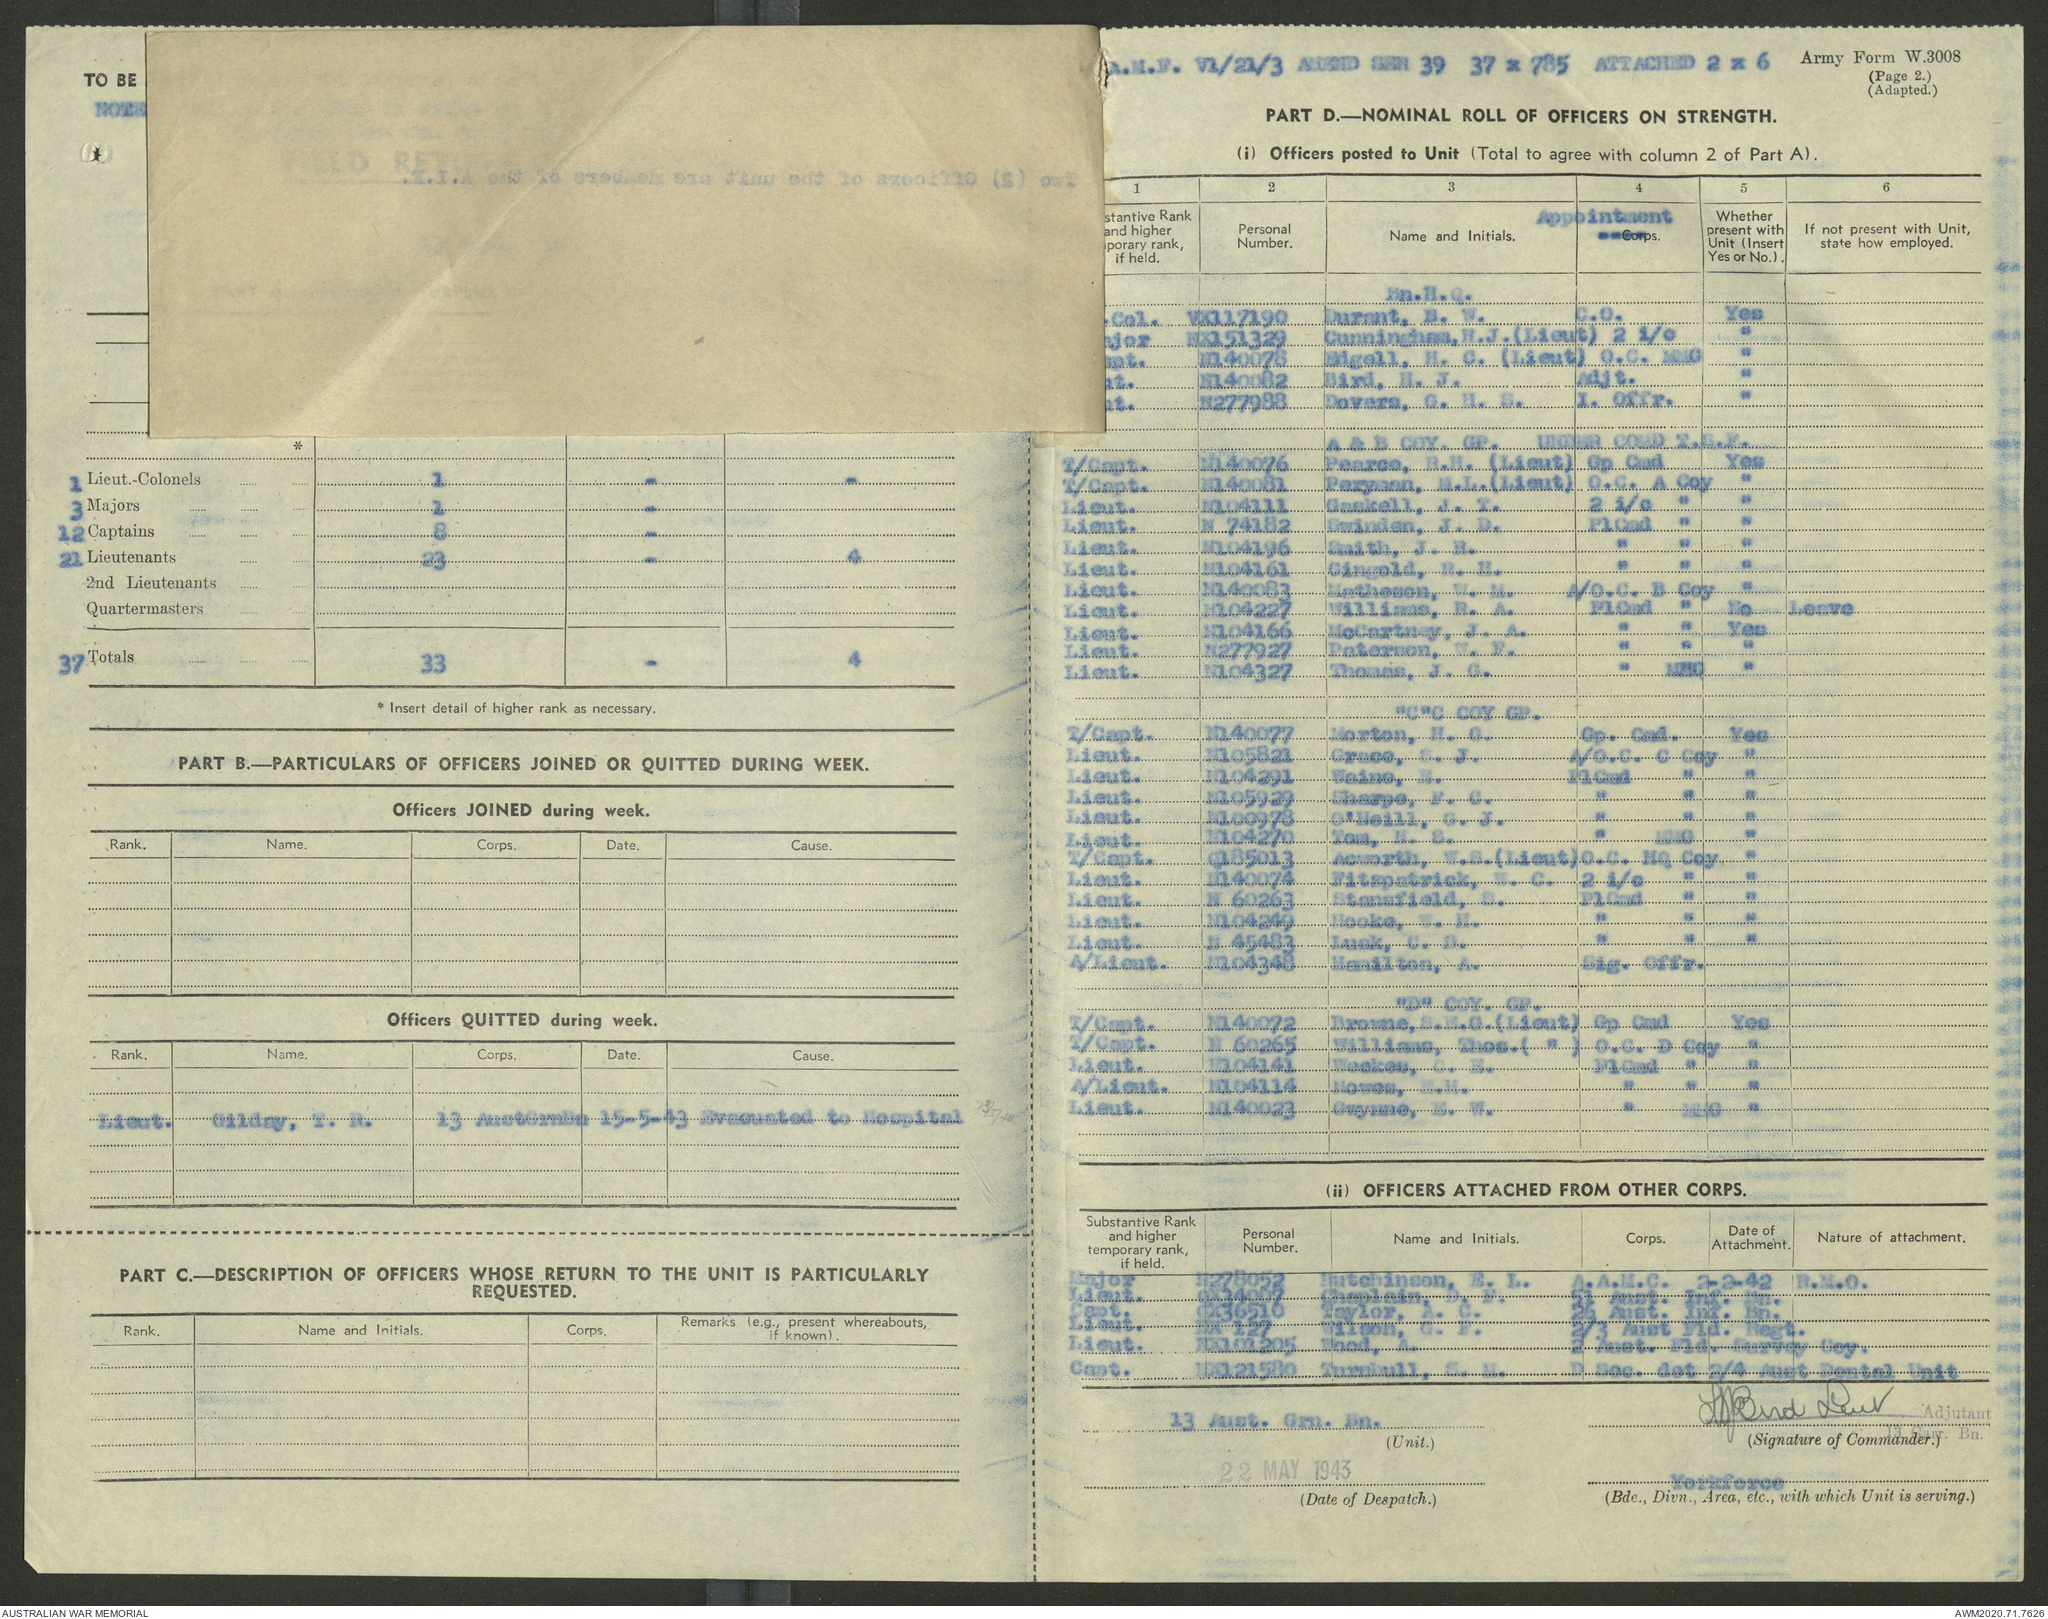 TO BE
NOTE
Two (2) Officers of the unit are members of the A.I.F.
*
1 Lieut.-Colonels 1 - -
3 Majors 1 -
12 Captains 8 -
21 Lieutenants 23 - 4
2nd Lieutenants
Quartermasters
37 Totals 33 - 4
* Insert detail of higher rank as necessary.
PART B.—PARTICULARS OF OFFICERS JOINED OR QUITTED DURING WEEK.
Officers JOINED during week.
Rank. Name. Corps. Date. Cause.
Officers QUITTED during week.
Rank. Name. Corps. Date. Cause.
Lieut. Gilday, T. R. 13 AustGrnBn 15-5-43 Evacuated to Hospital
PART C.—DESCRIPTION OF OFFICERS WHOSE RETURN TO THE UNIT IS PARTICULARLY
REQUESTED.
Rank. Name and Initials. Corps. Remarks (e.g., present whereabouts,
if known).
A.M.F. V1/21/3 AMEND SER 39 37 x 785 ATTACHED 2 x 6
Army Form W.3008
(Page 2.)
(Adapted.)
PART D.—NOMINAL ROLL OF OFFICERS ON STRENGTH.
(i) Officers posted to Unit (Total to agree with column 2 of Part A).
1 2 3 4 5 6
stantive Rank
and higher
porary rank,
if held.
Personal
Number.
Name and Initials.
Appointment
Corps.
Whether
present with
Unit (Insert
Yes or No.).
If not present with Unit,
state how employed.
Bn.H.Q.
.Col. VX117190 Durant, B. W. C.O. Yes
jor NX151329 Cunningham,H.J.(Lieut) 2 i/c "
pt. N140078 Edgell, H. C. (Lieut) O.C. MMG "
ut. N140082 Bird, H. J. Adjt. "
ut. N277988 Dovers, G. H. S. I. Offr. "
A & B COY. GP. UNDER COMD T.S.F.
T/Capt. N140076 Pearce, R.H. (Lieut) Gp Cmd Yes
T/Capt. N140081 Peryman, M.L.(Lieut) O.C. A Coy "
Lieut. N104111 Gaskell, J. T. 2 i/c " "
Lieut. N 74182 Swinden, J. D. PlCmd " "
Lieut. N104196 Smith, J. R. " " "
Lieut. N104161 Gingold, R. H. " " "
Lieut. N140083 Matheson, W. M. A/O.C. B Coy "
Lieut. N104227 Williams, R. A. PlCmd " No Leave
Lieut. N104166 McCartney, J. A. " " Yes
Lieut. N277927 Paterson, W. F. " " "
Lieut. N104327 Thomas, J. G. " MMG "
"C"C COY GP.
T/Capt. N140077 Morton, H. G. Gp. Cmd. Yes
Lieut. N105821 Grace, S. J. A/O.C. C Coy "
Lieut. N104291 Waine, E. PlCmd " "
Lieut. N105929 Sharpe, F. C. " " "
Lieut. N100978 O'Neill, G. J. " " "
Lieut. N104270 Tom, N. S. " MMG "
T/Capt. Q185013 Acworth, W.S.(Lieut)O.C. HQ Coy "
Lieut. N140074 Fitzpatrick, W. C. 2 i/c " "
Lieut. N 60263 Stansfield, S. PlCmd " "
Lieut. N104249 Hooke, W. H. " " "
Lieut. N 45483 Lusk, C. D. " " "
A/Lieut. N104348 Hamilton, A. Sig. Offr.
"D" COY. GP.
T/Capt. N140072 Browne,S.M.G.(Lieut) Gp Cmd Yes
T/Capt. N 60265 Williams, Thos.( " ) O.C. D Coy "
Lieut. N104141 Weekes, C. E. PlCmd " "
A/Lieut. N104114 Mowes, E.M. " " "
Lieut. N140023 Gwynne, E. W. " MMG "
(ii) OFFICERS ATTACHED FROM OTHER CORPS.
Substantive Rank
and higher
temporary rank,
if held.
Personal
Number.
Name and Initials.
Corps.
Date of
Attachment.
Nature of attachment.
Major N278052 Hutchinson, E. L. A.A.M.C. 2-2-42 R.M.O.
Lieut. Chaplain, D. F. 51 Aust. Inf. Bn.
Capt. QX36510 Taylor, A. C. 26 Aust. Inf. Bn.
Lieut. Wilson, G. F. 2/3 Aust Fld. Regt.
Lieut. NX101205 Wood, A. 2 Aust. Fld. Survey Coy.
Capt. NX121580 Turnbull, S. M. D Sec. det 2/4 Aust Dental Unit
13 Aust. Grn. Bn.
(Unit.)
HJBird Lieut
Adjutant
13 Garr. Bn.
(Signature of Commander.)
22 MAY 1943
(Date of Despatch.)
Yorkforce
(Bde., Divn., Area, etc., with which Unit is serving.)
AUSTRALIAN WAR MEMORIAL
AWM2020.71.7626